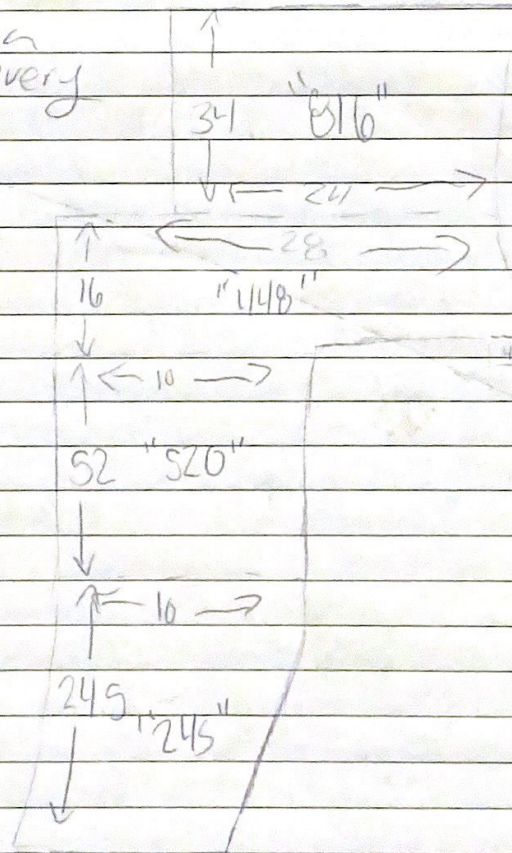 very
34 "816"
24
28
16 "448"
10
52 "520"
10
245 "245"